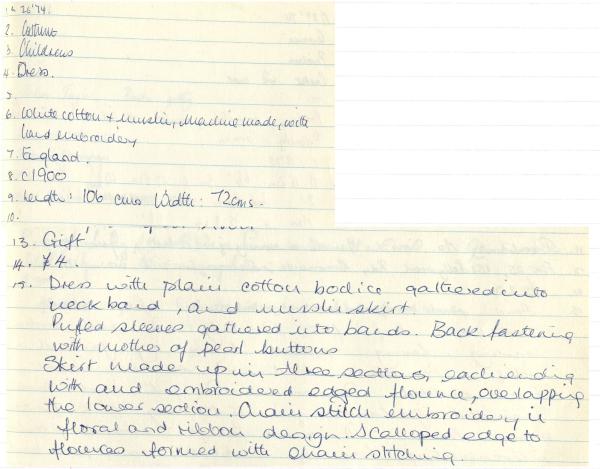 1. 26'74.
2. Costume
3. Childrens
4. Dress.
5.
6. White cotton + muslin, machine made, with
hand embroidery
7. England.
8. c1900
9. Length: 106 cms Width: 72cms.
10.
13. Gift
14. £4.
15. Dress with plain cotton bodice gathered into
neck band, and muslin skirt
Puffed sleeves gathered into bands. Back fastening
with mother of pearl buttons
Skirt made up in three sections, each ending
with and embroidered edged flounce, overlapping
the lower section. Chain stitch embroidery in
floral and ribbon design. Scalloped edge to
flounces formed with chain stitching.